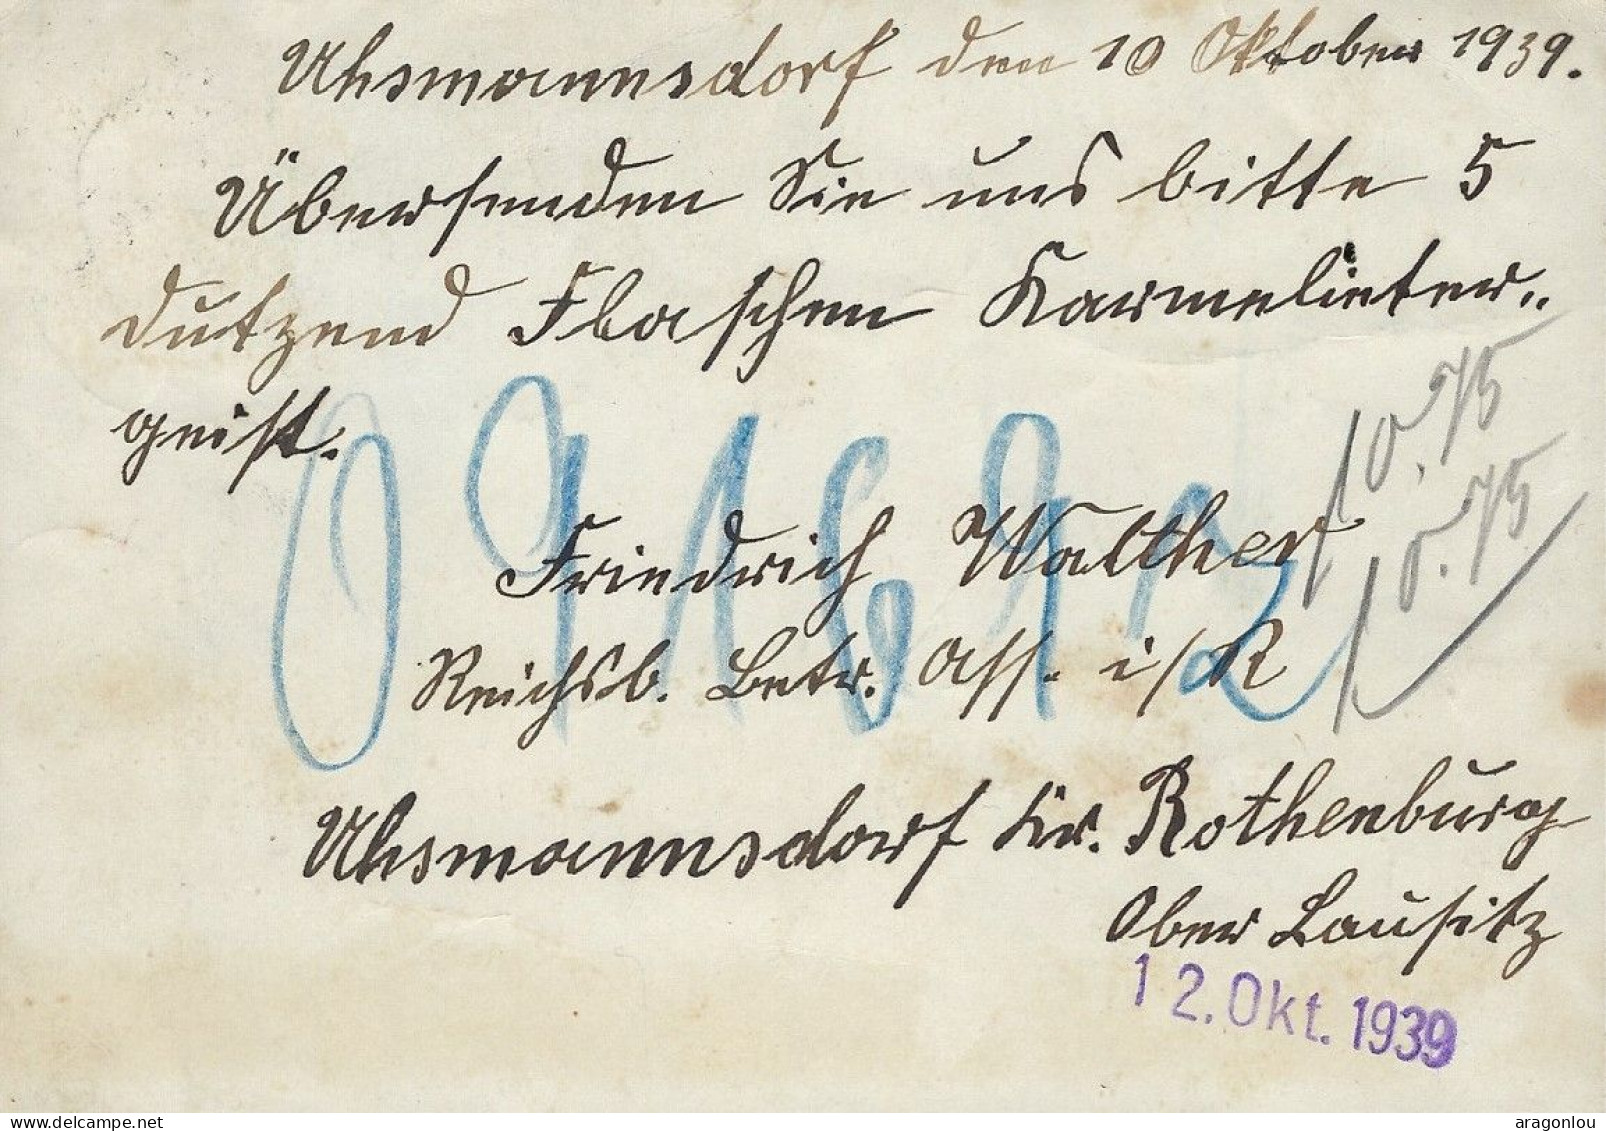 Uhsmannsdorf den 10 Oktober 1939.
Übersenden Sie uns bitte 5
dutzend Flaschen Karmelieter„
geist.
Friedrich Walther
Reichsb. Betr. Ass. i/R
Uhsmannsdorf Kr. Rothenburg
Ober Lausitz
12. Okt. 1939
aragonlou